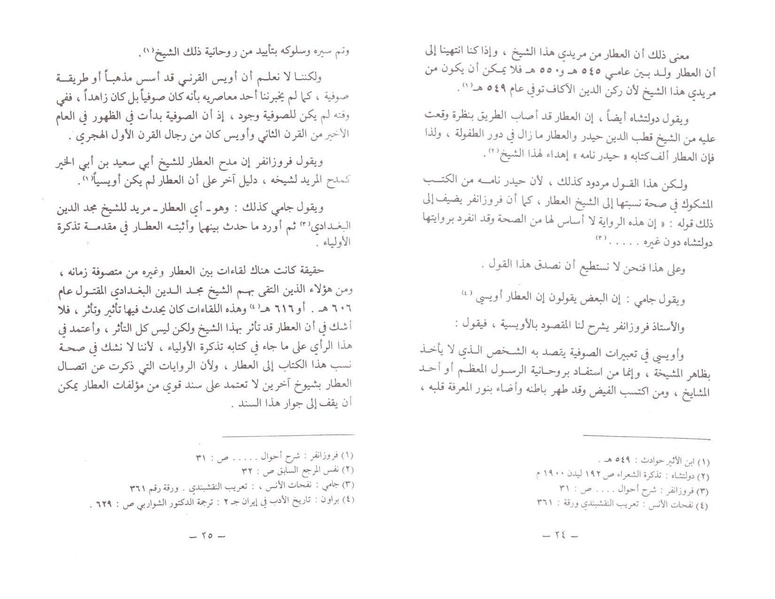 معنى ذلك أن العطار من مريدي هذا الشيخ ، وإذا كنا انتهينا إلى
أن العطار ولد بين عامي ٥٤٥ هـ و ٥٥٠ هـ فلا يمكن أن يكون من
مريدي هذا الشيخ لأن ركن الدين الأكاف توفي عام ٥٤٩ هـ(١).
ويقول دولتشاه أيضاً ، إن العطار قد أصاب الطريق بنظرة وقعت
عليه من الشيخ قطب الدين حيدر والعطار ما زال في دور الطفولة ، ولذا
فإن العطار ألف كتابه « حيدر نامه » إهداء لهذا الشيخ(٢).
ولكن هذا القول مردود كذلك ، لأن حيدر نامه من الكتب
المشكوك في صحة نسبتها إلى الشيخ العطار ، كما أن فروزانفر يضيف إلى
ذلك قوله : « إن هذه الرواية لا أساس لها من الصحة وقد انفرد بروايتها
دولتشاه دون غيره . . . . . (٣)
وعلى هذا فنحن لا نستطيع أن نصدق هذا القول .
ويقول جامي : إن البعض يقولون إن العطار أويسي (٤)
والأستاذ فروزانفر يشرح لنا المقصود بالأويسية ، فيقول :
وأويسي في تعبيرات الصوفية يقصد به الشخص الذي لا يأخذ
بظاهر المشيخة ، وإنما من استفاد بروحانية الرسول المعظم أو أحد
المشايخ ، ومن اكتسب الفيض وقد طهر باطنه وأضاء بنور المعرفة قلبه ،
(١) ابن الأثير حوادث : ٥٤٩ هـ .
(٢) دولتشاه : تذكرة الشعراء ص ١٩٢ ليدن ١٩٠٠ م
(٣) فروزانفر : شرح أحوال . . . . ص : ٣١
(٤) نفحات الأنس : تعريب النقشبندي ورقة : ٣٦١
— ٢٤ —
وتم سيره وسلوكه بتأييد من روحانية ذلك الشيخ(١).
ولكننا لا نعلم أن أويس القرني قد أسس مذهباً أو طريقة
صوفية ، كما لم يخبرنا أحد معاصريه بأنه كان صوفياً بل كان زاهداً ، ففي
وقته لم يكن للصوفية وجود ، إذ أن الصوفية بدأت في الظهور في العام
الأخير من القرن الثاني وأويس كان من رجال القرن الأول الهجري .
ويقول فروزانفر إن مدح العطار للشيخ أبي سعيد بن أبي الخير
كمدح المريد لشيخه ، دليل آخر على أن العطار لم يكن أويسياً(٢).
ويقول جامي كذلك : وهو ـ أي العطار ـ مريد للشيخ مجد الدين
البغدادي(٣) ثم أورد ما حدث بينهما وأثبته العطار في مقدمة تذكرة
الأولياء .
حقيقة كانت هناك لقاءات بين العطار وغيره من متصوفة زمانه ،
ومن هؤلاء الذين التقى بهم الشيخ مجد الدين البغدادي المقتول عام
٦٠٦ هـ . أو ٦١٦ هـ(٤) وهذه اللقاءات كان يحدث فيها تأثير وتأثر ، فلا
أشك في أن العطار قد تأثر بهذا الشيخ ولكن ليس كل التأثر ، وأعتمد في
هذا الرأي على ما جاء في كتابه تذكرة الأولياء ، لأننا لا نشك في صحة
نسب هذا الكتاب إلى العطار ، ولأن الروايات التي ذكرت عن اتصال
العطار بشيوخ آخرين لا تعتمد على سند قوي من مؤلفات العطار يمكن
أن يقف إلى جوار هذا السند .
(١) فروزانفر : شرح أحوال . . . . . ص : ٣١
(٢) نفس المرجع السابق ص : ٣٢
(٣) جامي : نفحات الأنس ، : تعريب النقشبندي . ورقة رقم ٣٦١
(٤) براون : تاريخ الأدب في إيران جـ ٢ : ترجمة الدكتور الشواربي ص : ٦٢٩ .
— ٢٥ —